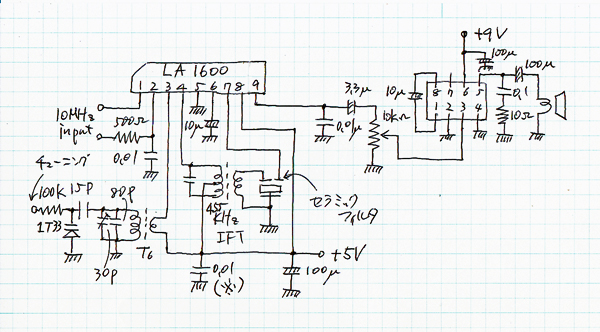 +9V
100μ
100μ
LA1600
1 2 3 4 5 6 7 8 9
10MHz
input
500Ω
0.01
10μ
3.3μ
10kΩ
0.01μ
10μ
8 7 6 5
1 2 3 4
0.1
10Ω
チューニング
100K
15P
80P
1T33
30P
T6
455
KHz
IFT
セラミック
フィルタ
+5V
0.01
(※)
100μ